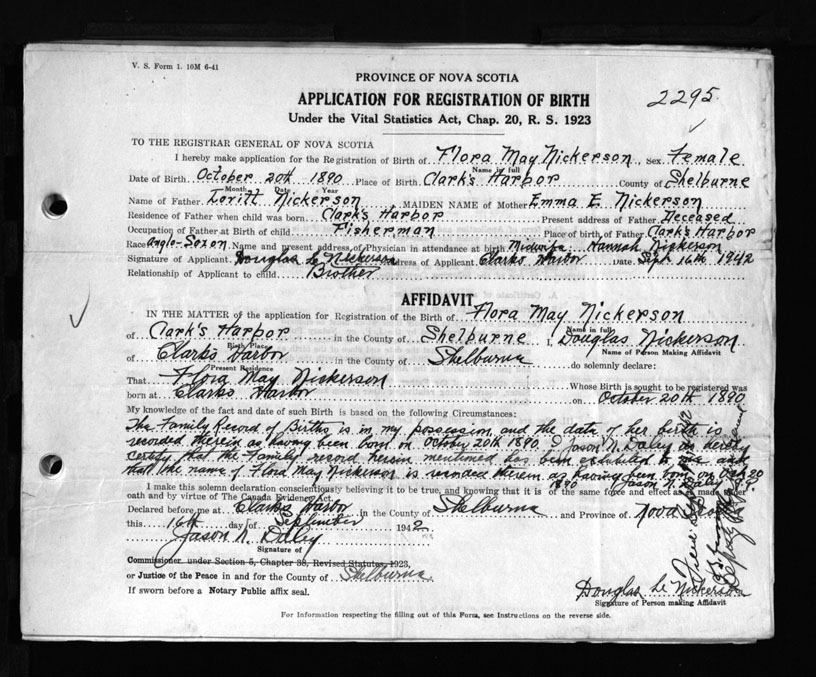 V. S. Form 1. 10M 6-41
PROVINCE OF NOVA SCOTIA
APPLICATION FOR REGISTRATION OF BIRTH
2295
Under the Vital Statistics Act, Chap. 20, R. S. 1923
TO THE REGISTRAR GENERAL OF NOVA SCOTIA
I hereby make application for the Registration of Birth of Flora May Nickerson, Sex Female
Name in full
Date of Birth October 20th 1890 Place of Birth Clark's Harbor County of Shelburne
Month Date Year
Name of Father Nickerson MAIDEN NAME of Mother Emma E. Nickerson
Residence of Father when child was born Clark's Harbor Present address of Father Deceased
Occupation of Father at Birth of child Fisherman Place of birth of Father Clark's Harbor
Race Anglo-Saxon Name and present address of Physician in attendance at birth Midwife Hannah Nickerson
Signature of Applicant Douglas Le Nickerson Address of Applicant Clarks Harbor Date Sept 16th 1942
Relationship of Applicant to child Brother
AFFIDAVIT
IN THE MATTER of the application for Registration of the Birth of Flora May Nickerson
Name in full
of Clark's Harbor in the County of Shelburne I, Douglas Nickerson
Birth Place Name of Person Making Affidavit
of Clarks Harbor in the County of Shelburne do solemnly declare:
Present Residence
That Flora May Nickerson Whose Birth is sought to be registered was
born at Clarks Harbor on October 20th 1890
My knowledge of the fact and date of such Birth is based on the following Circumstances:
The Family Record of Births is in my possession and the date of her birth is
recorded therein as having been born on October 20th 1890. I Jason N. Daley do hereby
certify that the Family record herein mentioned has been exhibited to me and
that the name of Flora May Nickerson is recorded therein as having been born on Oct 20
1890 Jason N. Daley
I make this solemn declaration conscientiously believing it to be true, and knowing that it is of the same force and effect as if made under
oath and by virtue of The Canada Evidence Act.
Declared before me at Clarks Harbor in the County of Shelburne and Province of Nova Scotia
this 16th day of September 1942
Jason N. Daley
Signature of
Commissioner under Section 5, Chapter 38, Revised Statutes, 1923,
or Justice of the Peace in and for the County of Shelburne
If sworn before a Notary Public affix seal.
Douglas Le Nickerson
Signature of Person making Affidavit
For Information respecting the filling out of this Form, see Instructions on the reverse side.